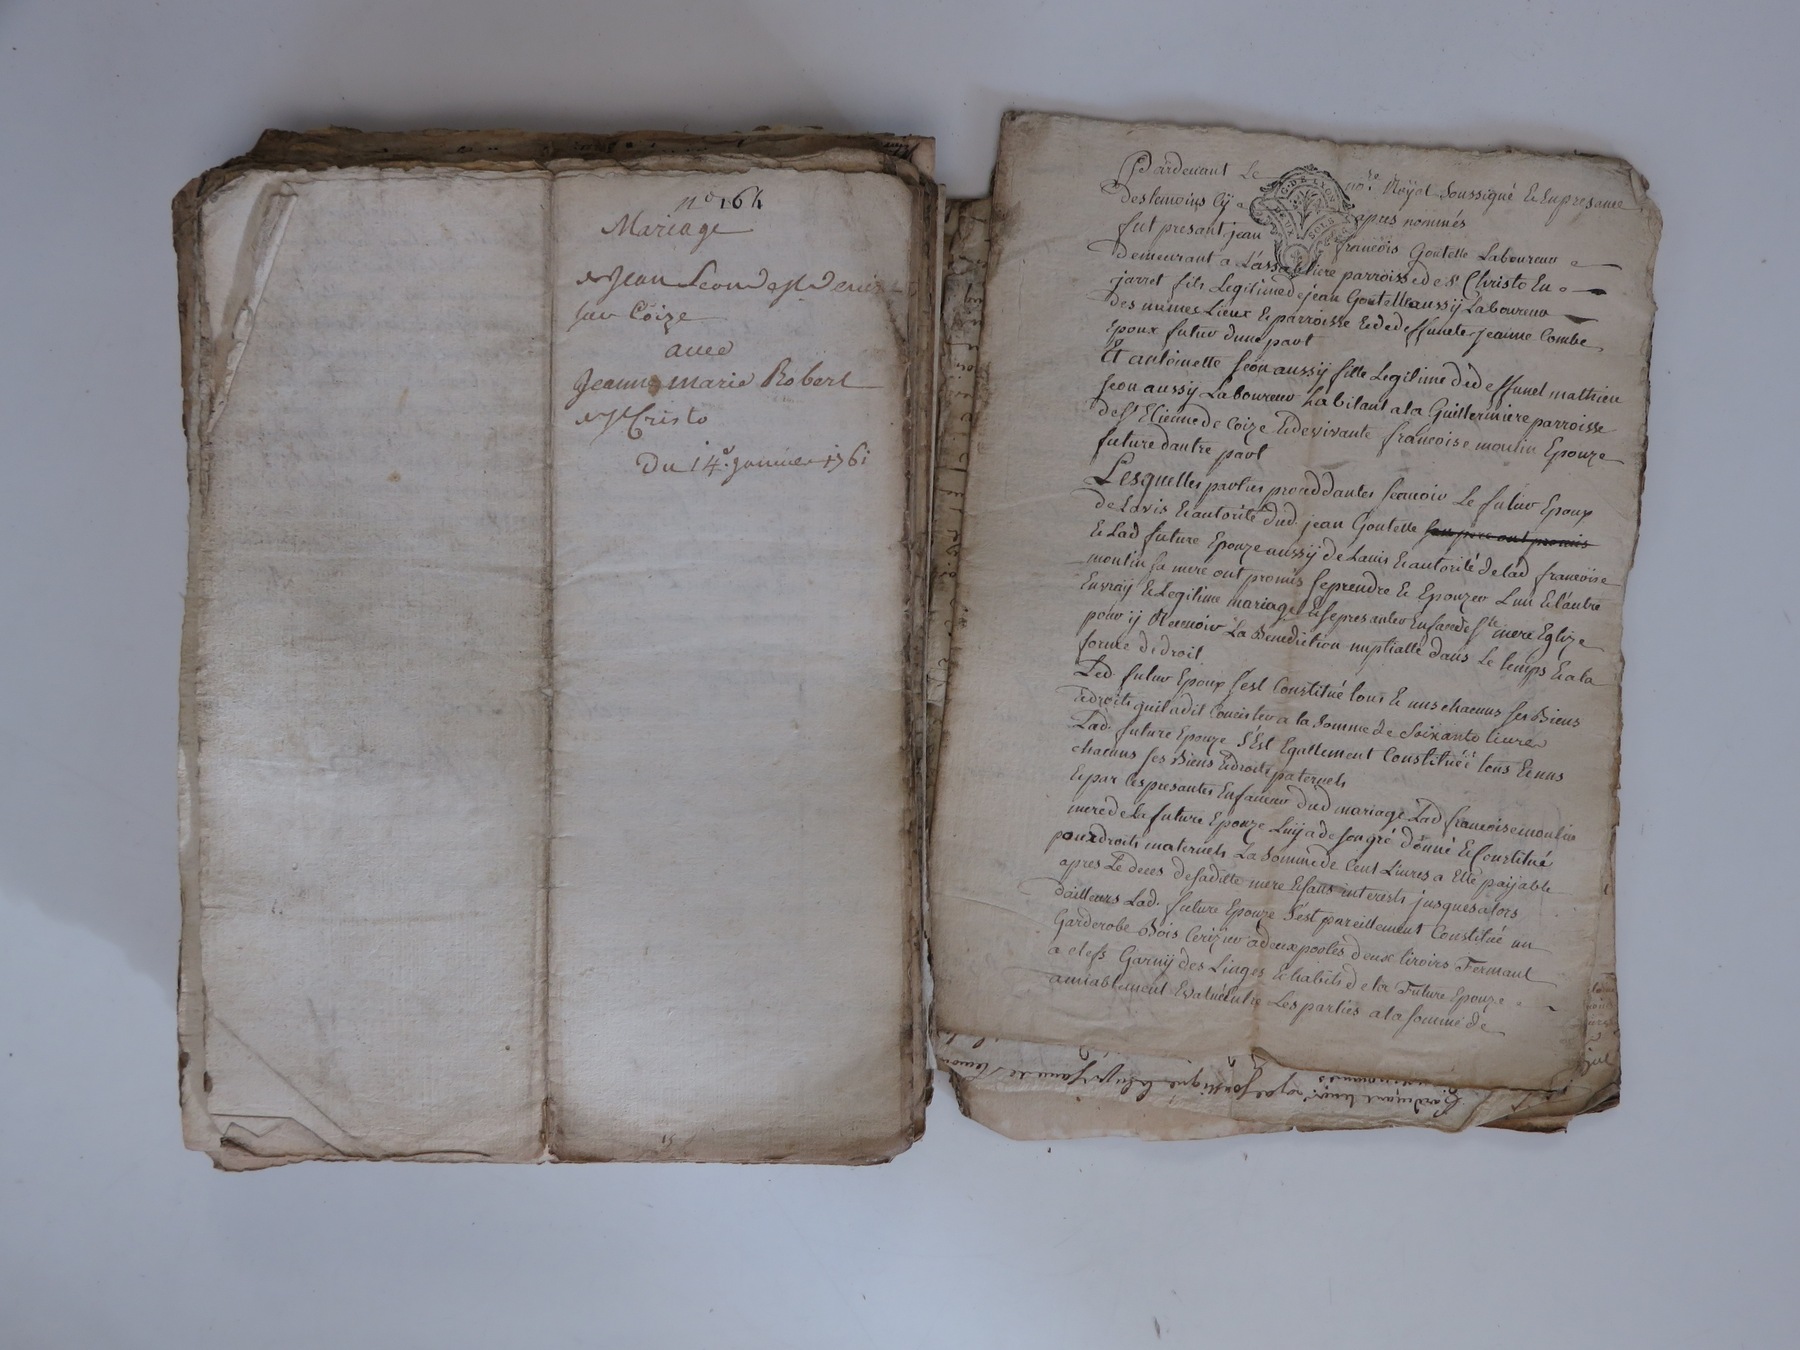 n° 164
Mariage
de Jean Leon de St Denis
sur Coize
avec
Jeanne marie Robert
de St Cristo
Du 14e. janvier 1761
Pardevant Le nore Royal Soussigné & En presance
des temoins cy apres nommés
fut present jean francois Goutelle Laboureur
demeurant a parroisse de St Christo En
jarret fils Legitime de jean Goutelle aussy Laboureur
des mêmes Lieux & parroisse & de deffuncte jeanne Combe
Epoux futur dune part
Et antoinette feon aussy fille Legitime de deffunct mathieu
feon aussy Laboureur habitant a la Guillermiere parroisse
de St Etienne de Coize & de vivante francoise moulin Epouze
future dautre part
Lesquelles parties proceddantes scavoir Le futur Epoux
de Lavis & autorité dud. jean Goutelle son pere ont promis
& Lad future Epouze aussy de Lavis & autorité de lad francoise
moulin sa mere ont promis se prendre & Epouzer Lun & l'autre
En vray & Legitime mariage & se presanter En face de Ste mere Eglize
pour y Recevoir La Benediction nuptialle dans Le temps & a la
forme de droit
Led. futur Epoux s'est Constitué tous & uns chacuns ses Biens
& droits quil a dit Concister a la Somme de Soixante livres
Lad. future Epouze S'Est Egallement Constituée tous & uns
chacuns ses Biens & droits paternels
& par les presantes En faveur dud mariage Lad francoise moulin
mere de la future Epouze Luy a de son gré donné & Constitué
pour droits maternels La Somme de Cent Livres a Elle payable
apres Le deces de sa ditte mere & sans interests jusques alors
dailleurs Lad. future Epouze S'est pareillement Constitué un
Garderobe Bois Cerizier a deux portes deux tiroirs Fermant
a clefs Garny des Linges & habits de la Future Epouze
amiablement Evalué Entre Les parties a la somme de